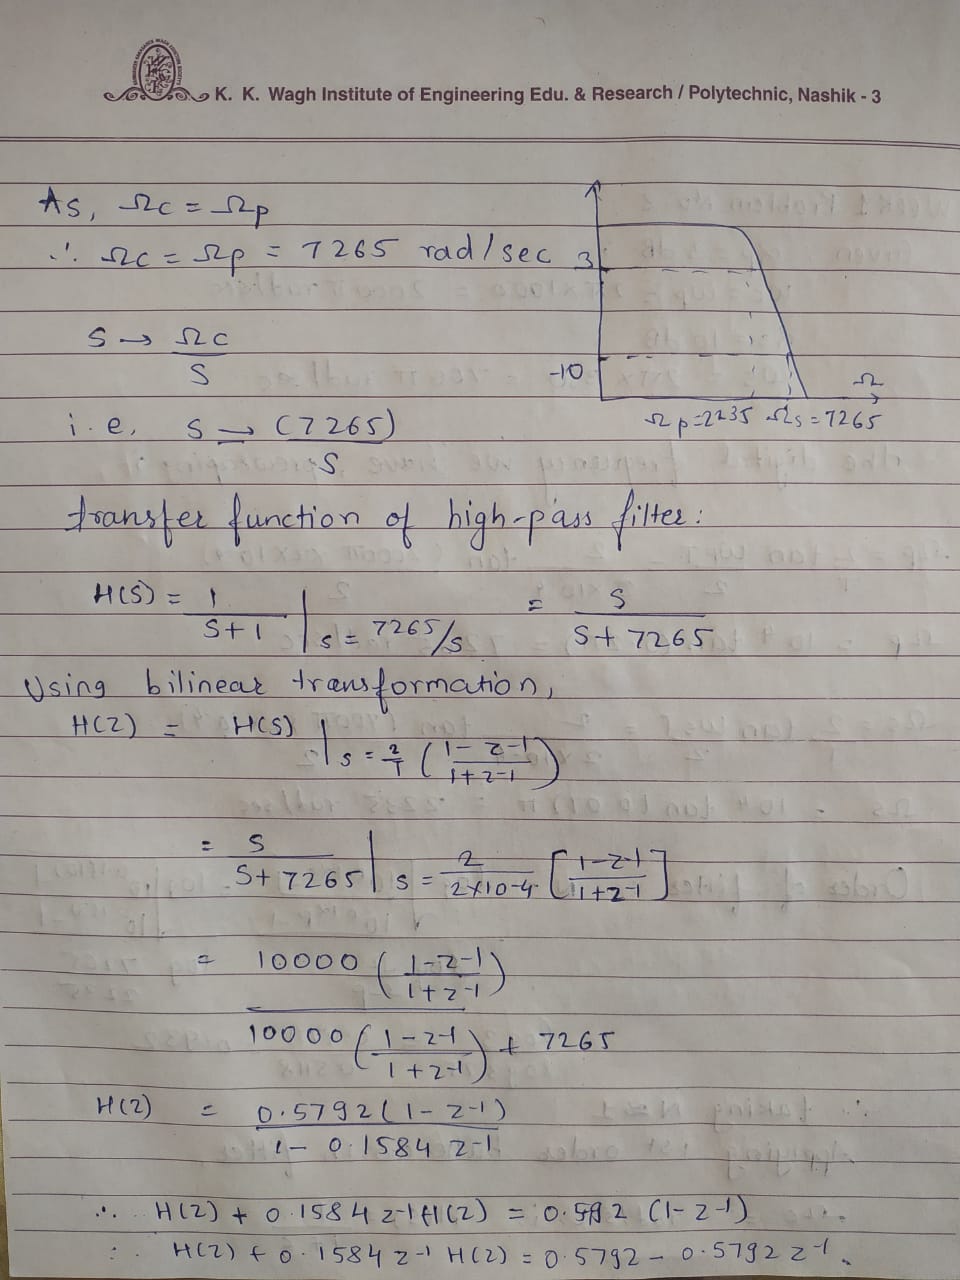 K. K. Wagh Institute of Engineering Edu. & Research / Polytechnic, Nashik - 3
As, Ωc = Ωp
∴ Ωc = Ωp = 7265 rad/sec
3
-10
Ω
Ωp=2235 Ωs=7265
S → Ωc
S
i.e, S → (7265)
S
transfer function of high-pass filter:
H(S) = 1 / S+1 | s = 7265/s = S / S + 7265
Using bilinear transformation,
H(Z) = H(S) | s = 2/T (1 - z-1 / 1+z-1)
= S / S+7265 | s = 2 / 2x10-4 [1-z-1 / 1+z-1]
= 10000 (1-z-1 / 1+z-1)
10000 (1-z-1 / 1+z-1) + 7265
H(Z) = 0.5792(1-z-1)
1 - 0.1584 z-1
∴ H(Z) + 0.1584 z-1 H(Z) = 0.592 (1-z-1)
∴ H(Z) + 0.1584 z-1 H(Z) = 0.5792 - 0.5792 z-1.